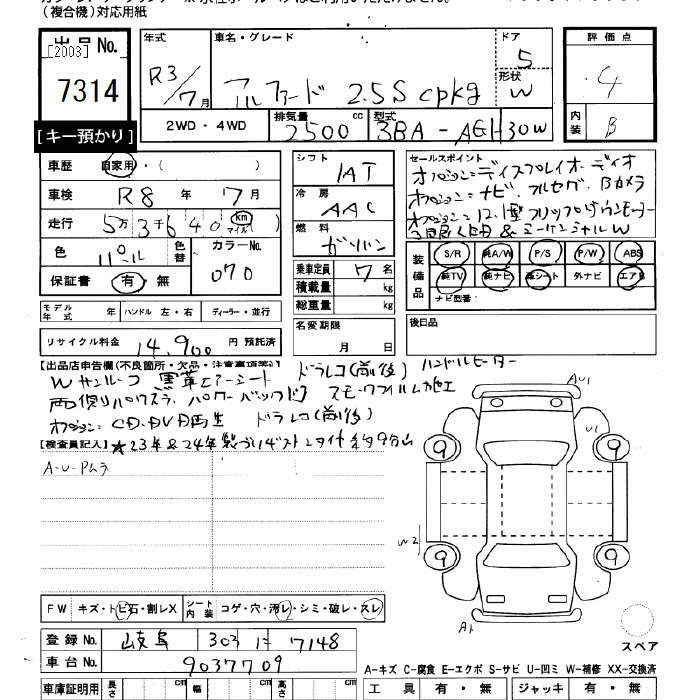 (複合機)対応用紙
出品No.
[2003]
7314
[キー預かり]
年式 R3/7月
車名・グレード アルファード 2.5S cpkg
ドア 5
形状 W
2WD・4WD
排気量 2500 cc
型式 3BA-AGH30W
評価点 4
内装 B
車歴 自家用・( )
車検 R8年 7月
走行 5万3千640 (km マイル)
色 パール
色替
カラーNo. 070
保証書 有・無
シフト IAT
冷房 AAC
燃料 ガソリン
乗車定員 7名
積載量 kg
総重量 kg
セールスポイント
オプション=ディスプレイオーディオ
オプション=ナビ、フルセグ、Bカメラ
装備品 S/R 純A/W P/S P/W ABS
純TV 純ナビ 革シート 外ナビ エアB
ナビ型番:
モデル年式 年 ハンドル 左・右 ディーラー・並行
リサイクル料金 14,900円 預託済
名変期限 月 日
後日品
【出品店申告欄(不良箇所・欠品・注意事項等)】
Wサンルーフ 黒革エアーシート ドラレコ(前後) ハンドルヒーター
両側パワスラ、パワーバックドア スモークフィルム施工
オプション=CD・DVD再生 ドラレコ(前後)
【検査員記入】 ★23年&24年製 9分山
A-U-Pムラ
AU1
9
9
9
9
W2
A1
スペア
FW キズ・トビ石・割レX
シート内装 コゲ・穴・汚レ・シミ・破レ・スレ
登録No. 岐阜 303 7148
車台No. 9037709
A-キズ C-腐食 E-エクボ S-サビ U-凹ミ W-補修 XX-交換済
車庫証明用 長さ cm 幅 cm 高さ cm
工具 有・無 ジャッキ 有・無